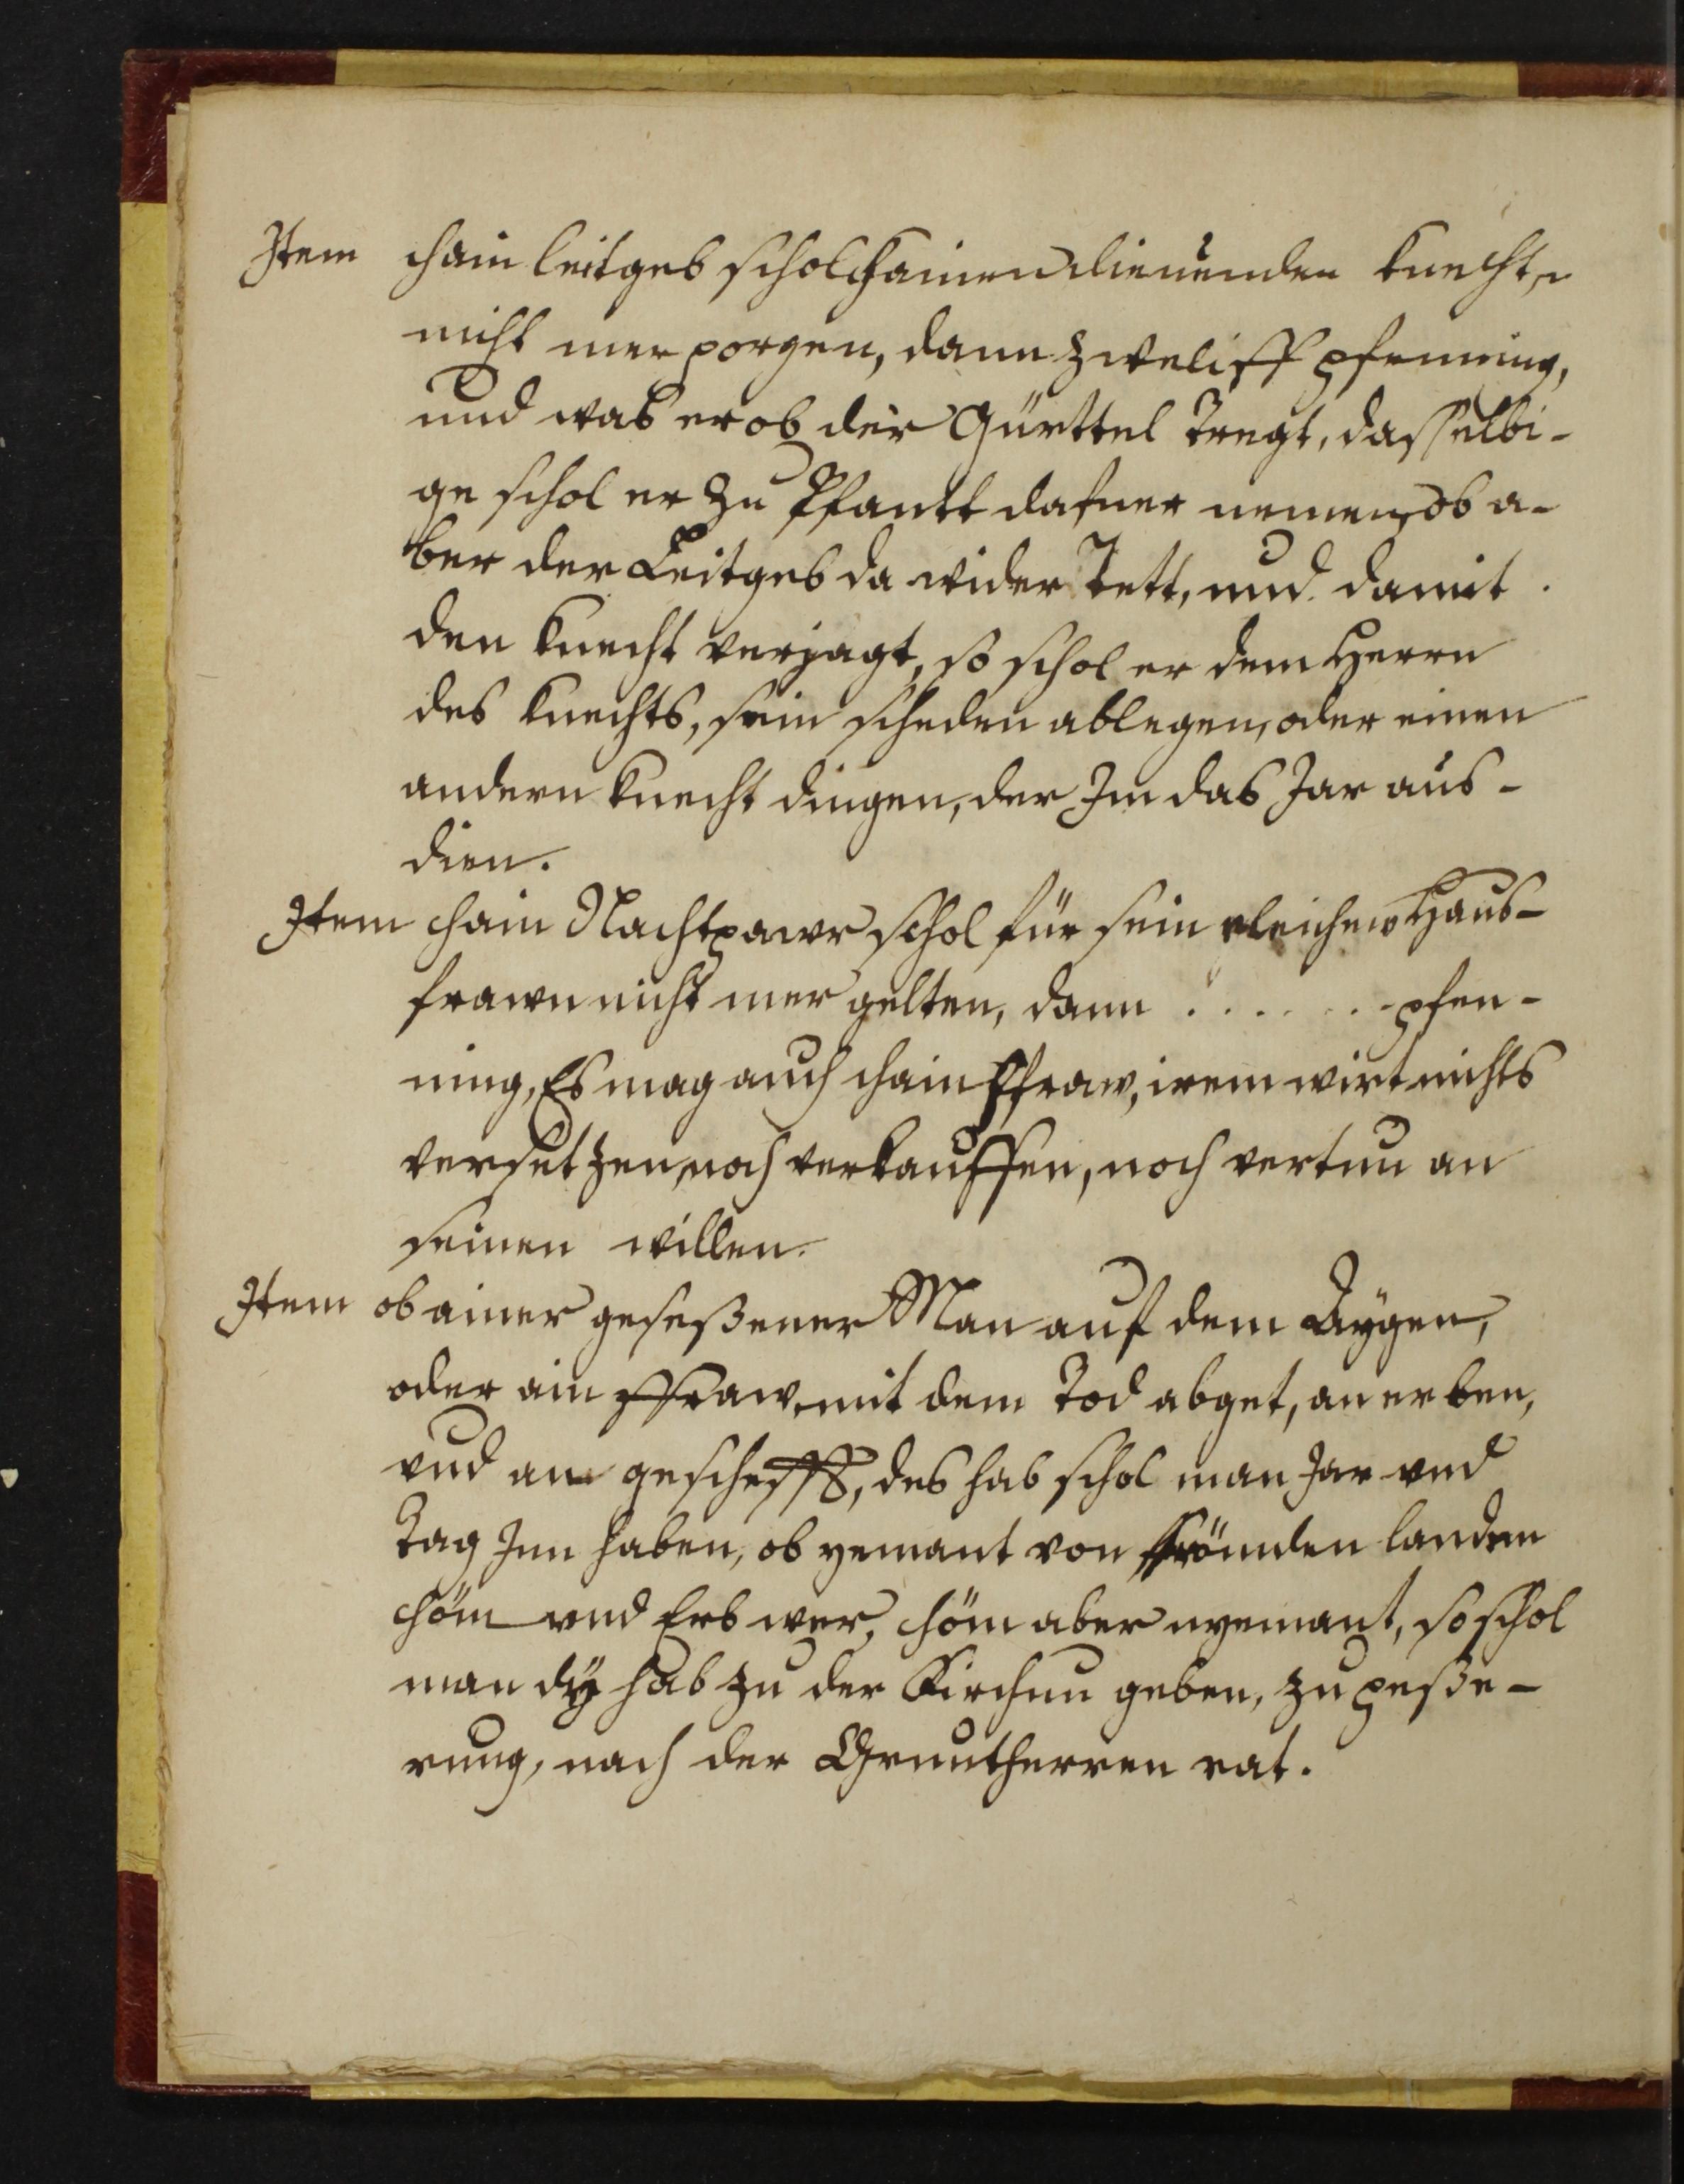 Item chain leitgeb schol chainen dienunden knecht,
nicht mer porgen, dann zweliff pfenning,
und was er ob der Gürttel tregt, dasselbi-
ge schol er zu Pfantt dafuer nemen, ob a-
ber der Leitgeb da wider tett, und damit
den knecht verjagt, so schol er dem Herrn
des knechts, sein scheden ablegen, oder einen
andern knecht dingen, der Im das Jar aus-
dien.
Item chain Nachtpawr schol für sein eleichew Haus-
frawn nicht mer gelten, dann . . . . . . . pfen-
ning, Es mag auch chain ffraw, irem wirt nichts
versetzen, noch verkauffen, noch vertun an
seinen willen.
Item ob ainer geseßener Man auf dem Aygen,
oder ain ffraw, mit dem Tod abget, an erben,
vnd an geschefft, des hab schol man Jar vnd
Tag Inn haben, ob yemant von ffrömden landen
chöm vnd Erb wer, chöm aber nyemant, so schol
man dÿ hab zu der Kirchen geben, zu peße-
rung, nach der Gruntherren rat.